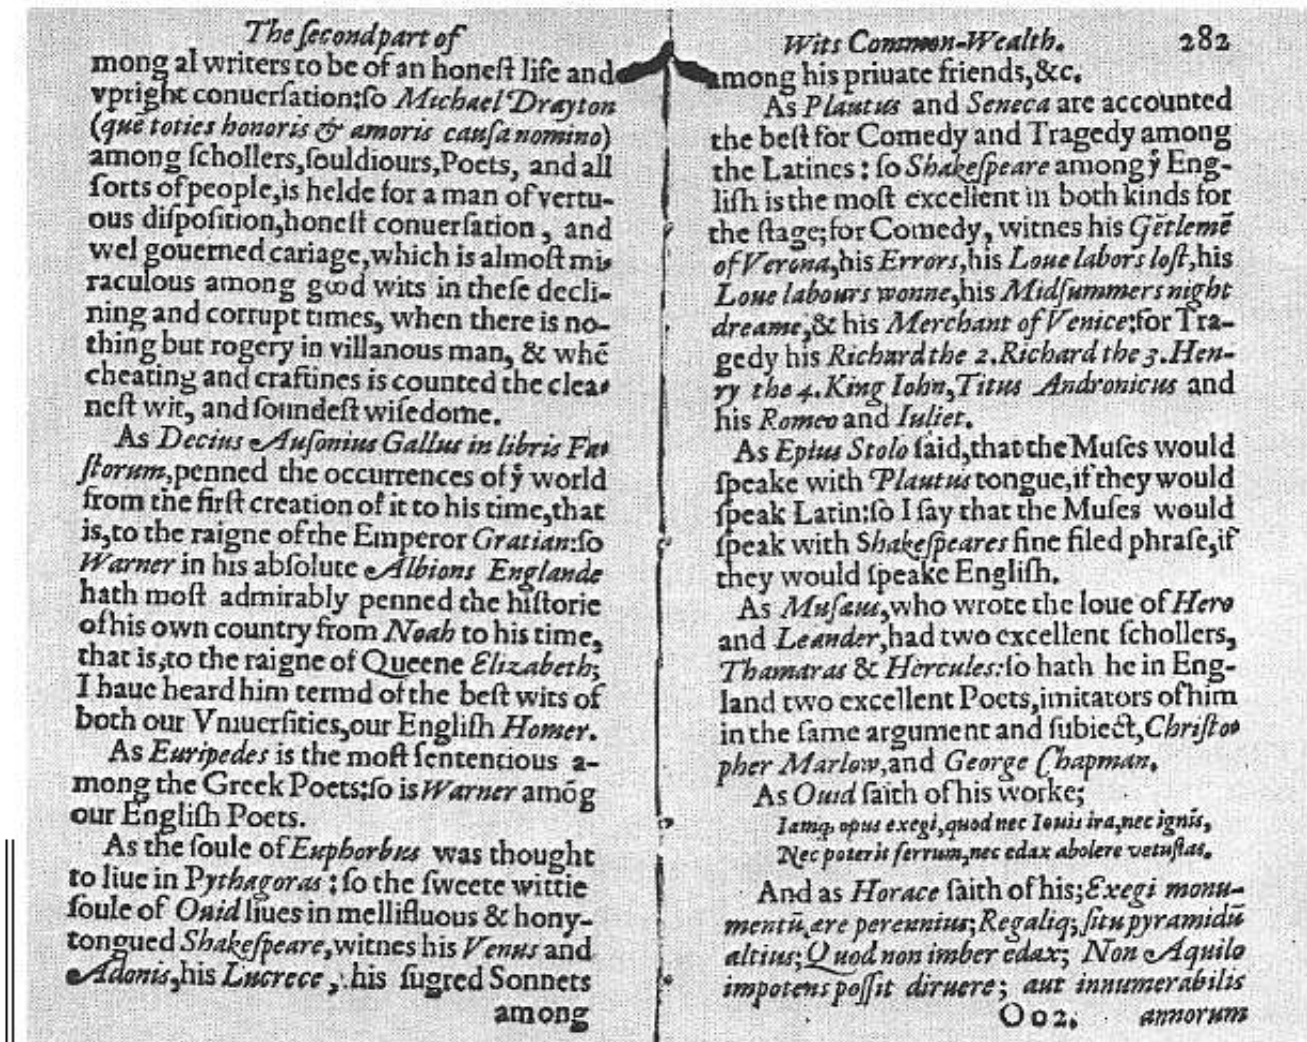 The ſecond part of
mong al writers to be of an honeſt life and
vpright conuerſation:ſo Michael Drayton
(quē toties honoris & amoris cauſa nomino)
among ſchollers,ſouldiours,Poets, and all
ſorts of people,is helde for a man of vertu-
ous diſpoſition,honeſt conuerſation, and
wel gouerned cariage,which is almoſt mi-
raculous among good wits in theſe decli-
ning and corrupt times, when there is no-
thing but rogery in villanous man, & whē
cheating and craftines is counted the clea-
neſt wit, and ſoundeſt wiſedome.
As Decius Auſonius Gallus in libris Fa-
ſtorum,penned the occurrences of yͤ world
from the firſt creation of it to his time,that
is,to the raigne of the Emperor Gratian:ſo
Warner in his abſolute Albions Englande
hath moſt admirably penned the hiſtorie
of his own country from Noah to his time,
that is,to the raigne of Queene Elizabeth;
I haue heard him termd of the beſt wits of
both our Vniuerſities,our Engliſh Homer.
As Euripedes is the moſt ſententious a-
mong the Greek Poets:ſo is Warner amōg
our Engliſh Poets.
As the ſoule of Euphorbus was thought
to liue in Pythagoras: ſo the ſweete wittie
ſoule of Ouid liues in mellifluous & hony-
tongued Shakeſpeare,witnes his Venus and
Adonis,his Lucrece, his ſugred Sonnets
among
Wits Common-Wealth. 282
among his priuate friends,&c.
As Plautus and Seneca are accounted
the beſt for Comedy and Tragedy among
the Latines: ſo Shakeſpeare among yͤ Eng-
liſh is the moſt excellent in both kinds for
the ſtage;for Comedy, witnes his Gētlemē
of Verona,his Errors,his Loue labors loſt,his
Loue labours wonne,his Midſummers night
dreame,& his Merchant of Venice:for Tra-
gedy his Richard the 2.Richard the 3.Hen-
ry the 4.King Iohn,Titus Andronicus and
his Romeo and Iuliet.
As Epius Stolo ſaid,that the Muſes would
ſpeake with Plautus tongue,if they would
ſpeak Latin:ſo I ſay that the Muſes would
ſpeak with Shakeſpeares fine filed phraſe,if
they would ſpeake Engliſh.
As Muſæus,who wrote the loue of Hero
and Leander,had two excellent ſchollers,
Thamaras & Hercules:ſo hath he in Eng-
land two excellent Poets,imitators of him
in the ſame argument and ſubiect,Chriſto-
pher Marlow,and George Chapman.
As Ouid ſaith of his worke;
Iamq. opus exegi,quod nec Iouis ira,nec ignis,
Nec poterit ferrum,nec edax abolere vetuſtas.
And as Horace ſaith of his;Exegi monu-
mentū ære perennius;Regaliq; ſitu pyramidū
altius;Quod non imber edax; Non Aquilo
impotens poſſit diruere; aut innumerabilis
Oo2. annorum